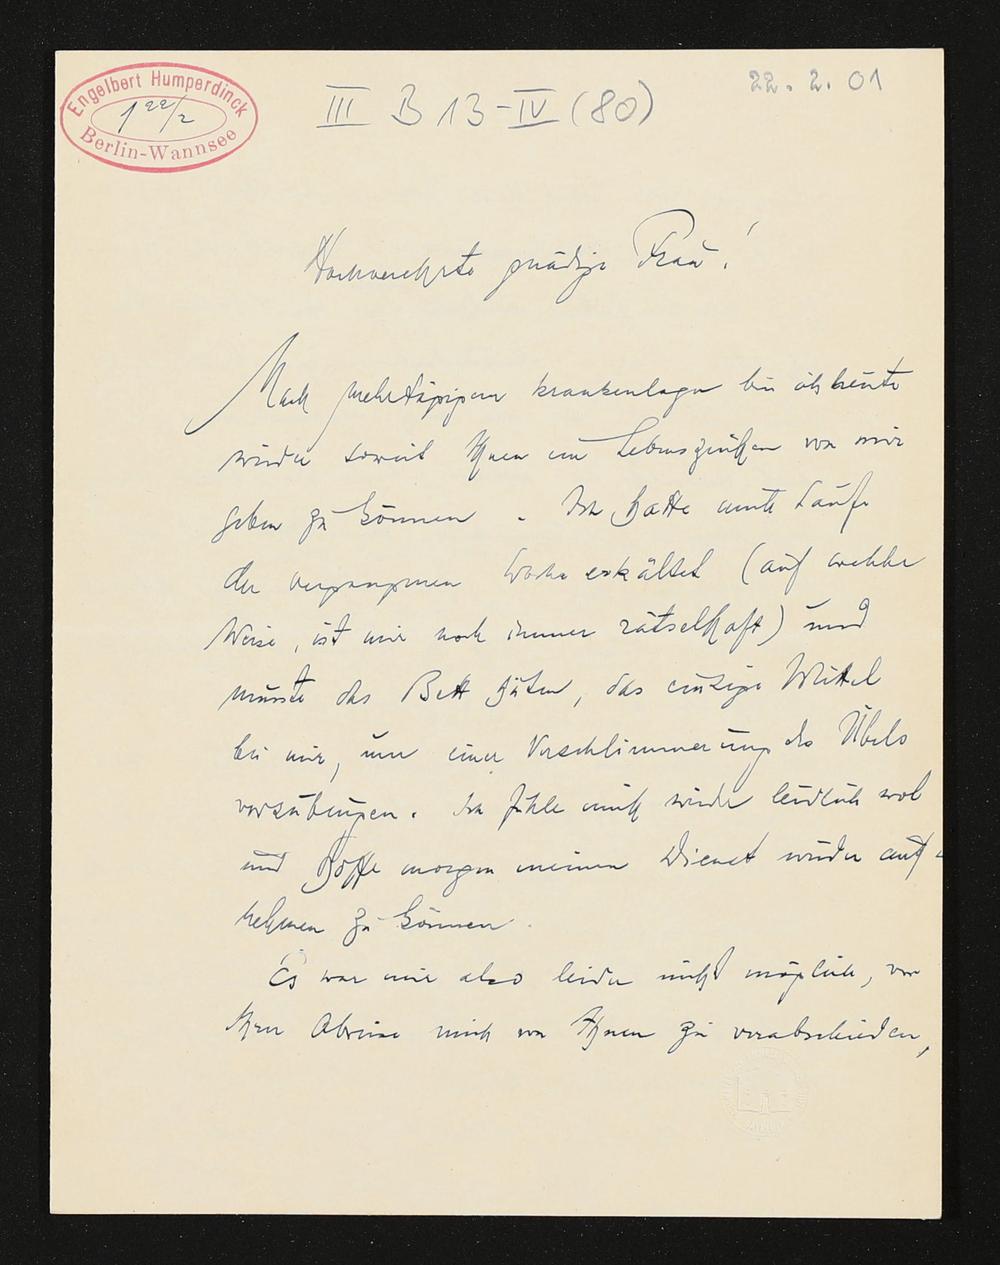 Engelbert Humperdinck
1 22/2
Berlin-Wannsee
III B 13-IV (80)
22. 2. 01
Hochverehrte gnädige Frau!
Nach mehrtägigem Krankenlager bin ich heute
wieder soweit Ihnen ein Lebenszeichen von mir
geben zu können. Ich hatte mich Laufe
der vergangenen Woche erkältet (auf welche
Weise, ist mir noch immer rätselhaft) und
musste das Bett hüten, das einzige Mittel
bei mir, um einer Verschlimmerung des Übels
vorzubeugen. Ich fühle mich wieder leidlich wol
und hoffe morgen meinen Dienst wieder auf-
nehmen zu können.
Es war mir also leider nicht möglich, vor
Ihrer Abreise mich von Ihnen zu verabschieden,